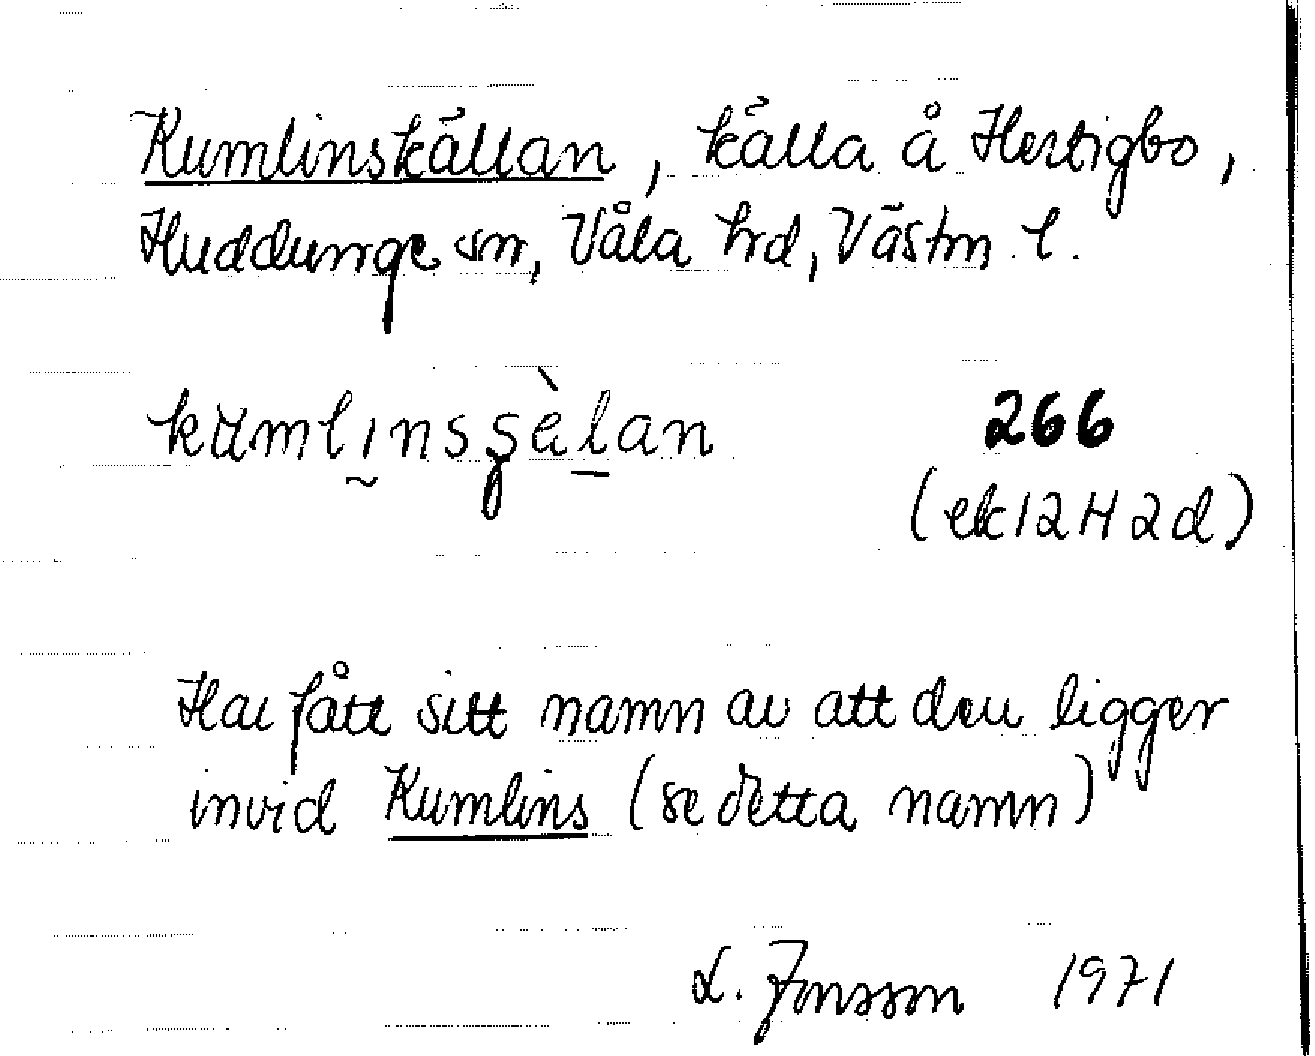 Kumlinskällan, källa å Hertigbo,
Huddunge sn, Våla hrd, Västm. l.
266
(ek 12H2d)
Har fått sitt namn av att den ligger
invid Kumlins (se detta namn)
L. Jonsson 1971